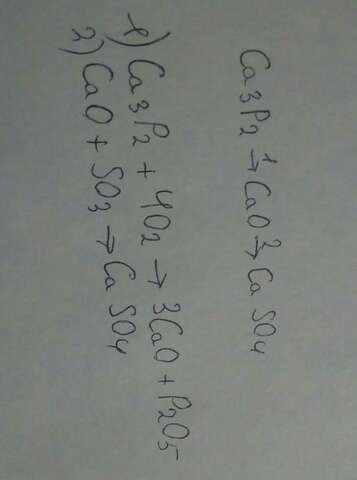 Ca3P2 →1 CaO →2 CaSO4
1) Ca3P2 + 4O2 → 3CaO + P2O5
2) CaO + SO3 → CaSO4